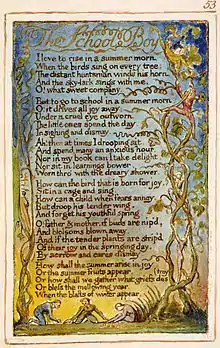 53
The School Boy
I love to rise in a summer morn,
When the birds sing on every tree;
The distant huntsman winds his horn,
And the sky-lark sings with me.
O! what sweet company.
But to go to school in a summer morn
O! it drives all joy away;
Under a cruel eye outworn,
The little ones spend the day,
In sighing and dismay.
Ah! then at times I drooping sit,
And spend many an anxious hour,
Nor in my book can I take delight,
Nor sit in learnings bower,
Worn thro' with the dreary shower.
How can the bird that is born for joy,
Sit in a cage and sing.
How can a child when fears annoy,
But droop his tender wing,
And forget his youthful spring.
O! father & mother, if buds are nip'd,
And blossoms blown away,
And if the tender plants are strip'd
Of their joy in the springing day,
By sorrow and cares dismay,
How shall the summer arise in joy
Or the summer fruits appear
Or how shall we gather what griefs des
troy
Or bless the mellowing year,
When the blasts of winter appear.